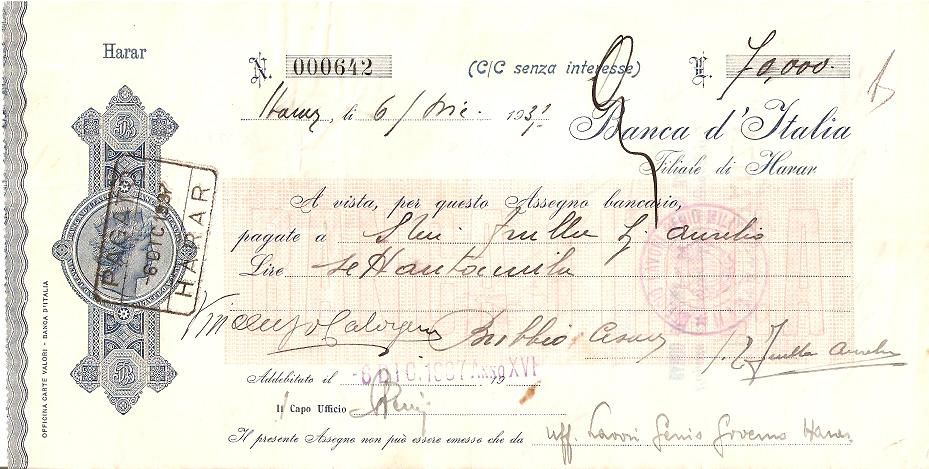 Harar
N. 000642 (C/C senza interesse) L. 70,000.
Harar, li 6/ Dic. 1937
Banca d'Italia
Filiale di Harar
A vista, per questo Assegno bancario,
pagate a Aurelio
Lire settantamila
PAGATO
-6 DIC 1937
HARAR
Aurelio
Addebitato il -6 DIC. 1937 ANNO XVI 19
Il Capo Ufficio
Il presente Assegno non può essere emesso che da Uff. Lavori Genio Governo Harar
OFFICINA CARTE VALORI - BANCA D'ITALIA